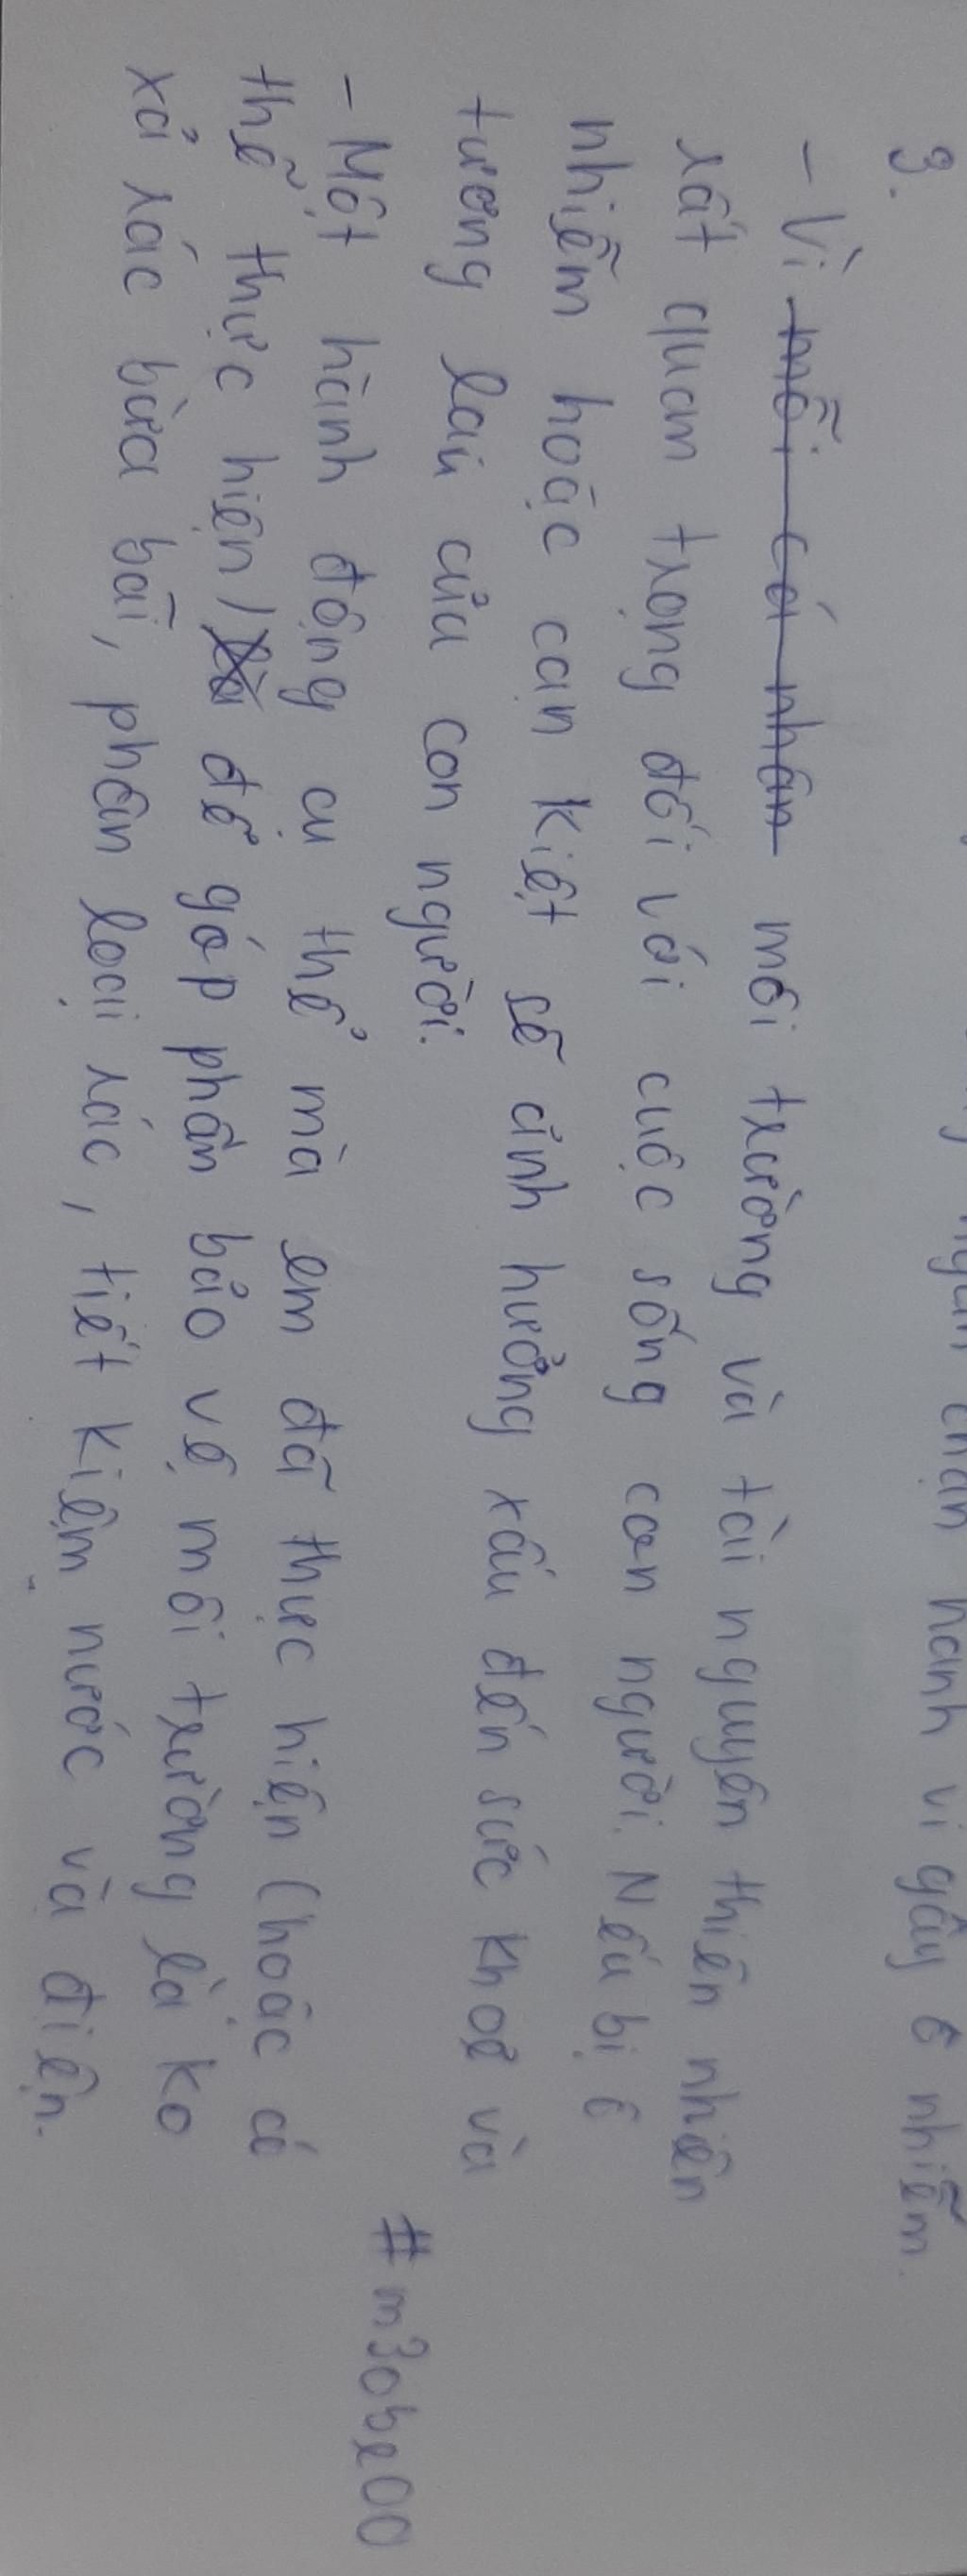 ngăn chặn hành vi gây ô nhiễm.
3.
- Vì mỗi cá nhân môi trường và tài nguyên thiên nhiên
rất quan trọng đối với cuộc sống con người. Nếu bị ô
nhiễm hoặc cạn kiệt sẽ ảnh hưởng xấu đến sức khoẻ và
tương lai của con người.
- Một hành động cụ thể mà em đã thực hiện (hoặc có
thể thực hiện) để góp phần bảo vệ môi trường là ko
xả rác bừa bãi, phân loại rác, tiết kiệm nước và điện.
#m30br00